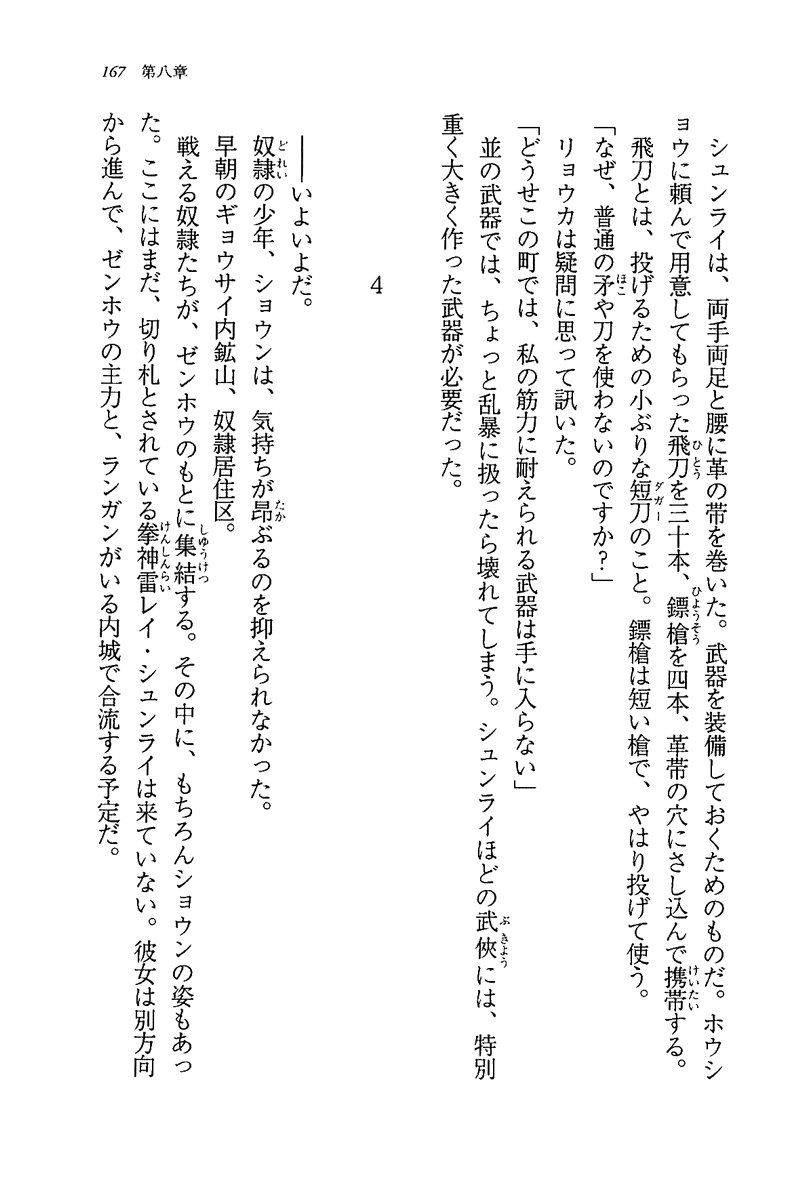 167 第八章
シュンライは、両手両足と腰に革の帯を巻いた。武器を装備しておくためのものだ。ホウシ
ョウに頼んで用意してもらった飛刀を三十本、鏢槍を四本、革帯の穴にさし込んで携帯する。
飛刀とは、投げるための小ぶりな短刀のこと。鏢槍は短い槍で、やはり投げて使う。
「なぜ、普通の矛や刀を使わないのですか？」
リョウカは疑問に思って訊いた。
「どうせこの町では、私の筋力に耐えられる武器は手に入らない」
並の武器では、ちょっと乱暴に扱ったら壊れてしまう。シュンライほどの武侠には、特別
重く大きく作った武器が必要だった。
4
――いよいよだ。
奴隷の少年、ショウンは、気持ちが昂ぶるのを抑えられなかった。
早朝のギョウサイ内鉱山、奴隷居住区。
戦える奴隷たちが、ゼンホウのもとに集結する。その中に、もちろんショウンの姿もあっ
た。ここにはまだ、切り札とされている拳神雷レイ・シュンライは来ていない。彼女は別方向
から進んで、ゼンホウの主力と、ランガンがいる内城で合流する予定だ。